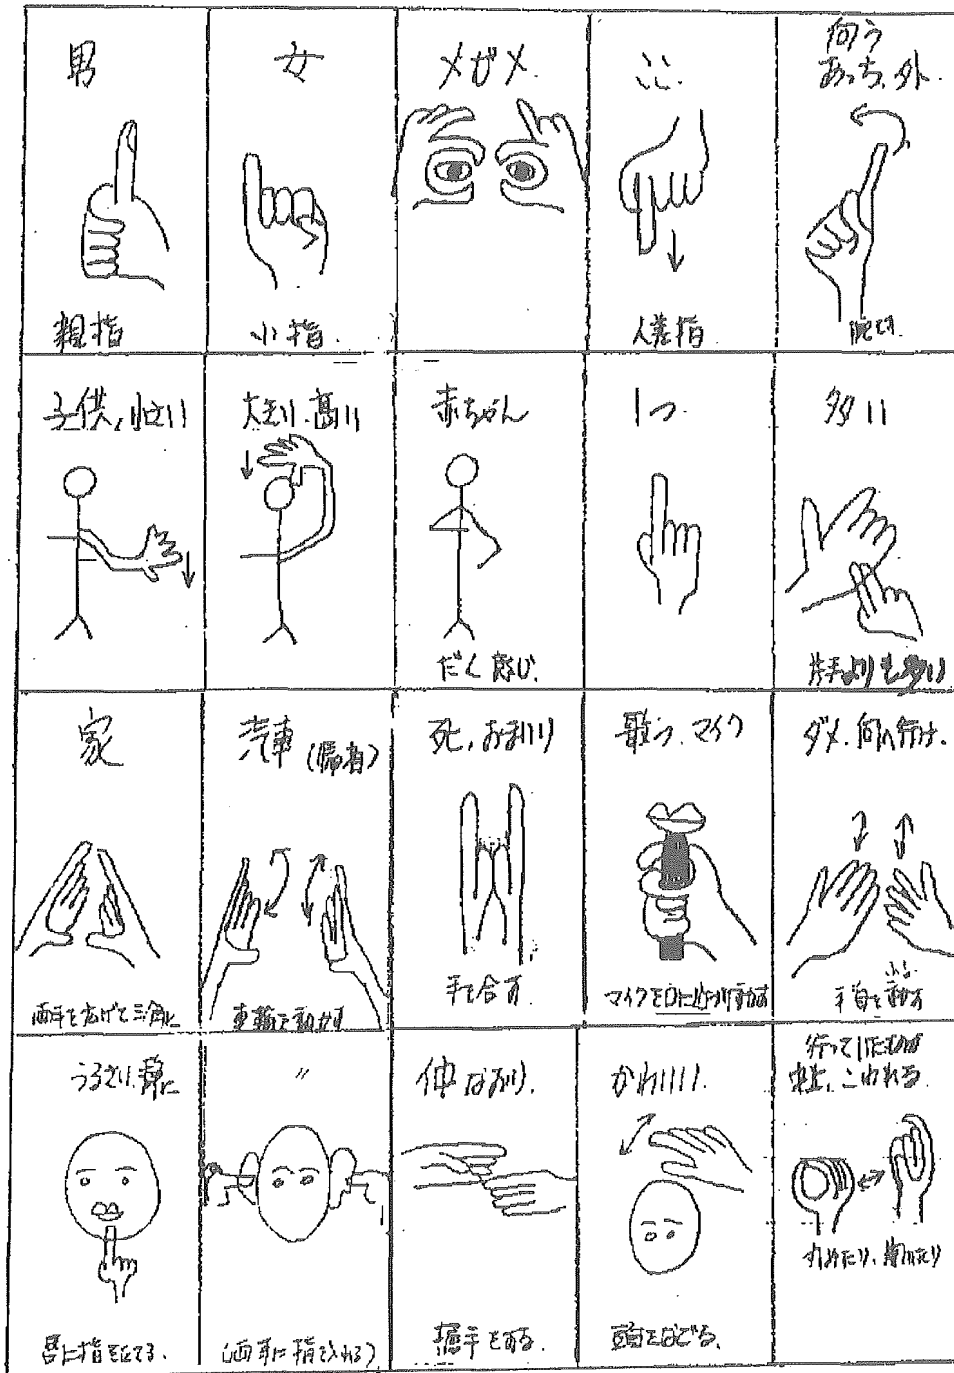 男
親指
女
小指.
メガネ.
ここ.
人差指.
向う
あっち、外.
子供,小さい
大きい.高い
赤ちゃん
だく感じ.
1つ.
多い
片手よりも多い
家
両手を広げて三角に
汽車(帰省)
車輪を動かす
死,おまいり
手を合す.
歌う、マイク
マイクを口に近づけ動かす
ダメ.
ふる
手首を動かす
うるさい.静に
唇に指を立てる.
〃
(両耳に指を入れる)
仲なおり.
握手をする.
かわいい.
頭をなでる.
行っていたものが
中止,こわれる.
丸めたり、開いたり